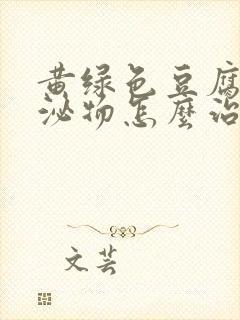 黄绿色豆腐
泌物怎麽治
文芸